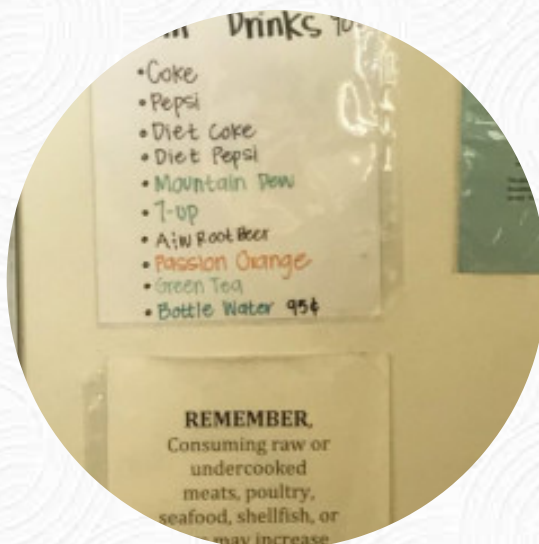 Drinks
•Coke
•Pepsi
•Diet Coke
•Diet Pepsi
•Mountain Dew
•7-up
•A&W Root Beer
•Passion Orange
•Green Tea
•Bottle Water 95¢
REMEMBER,
Consuming raw or
undercooked
meats, poultry,
seafood, shellfish, or
may increase